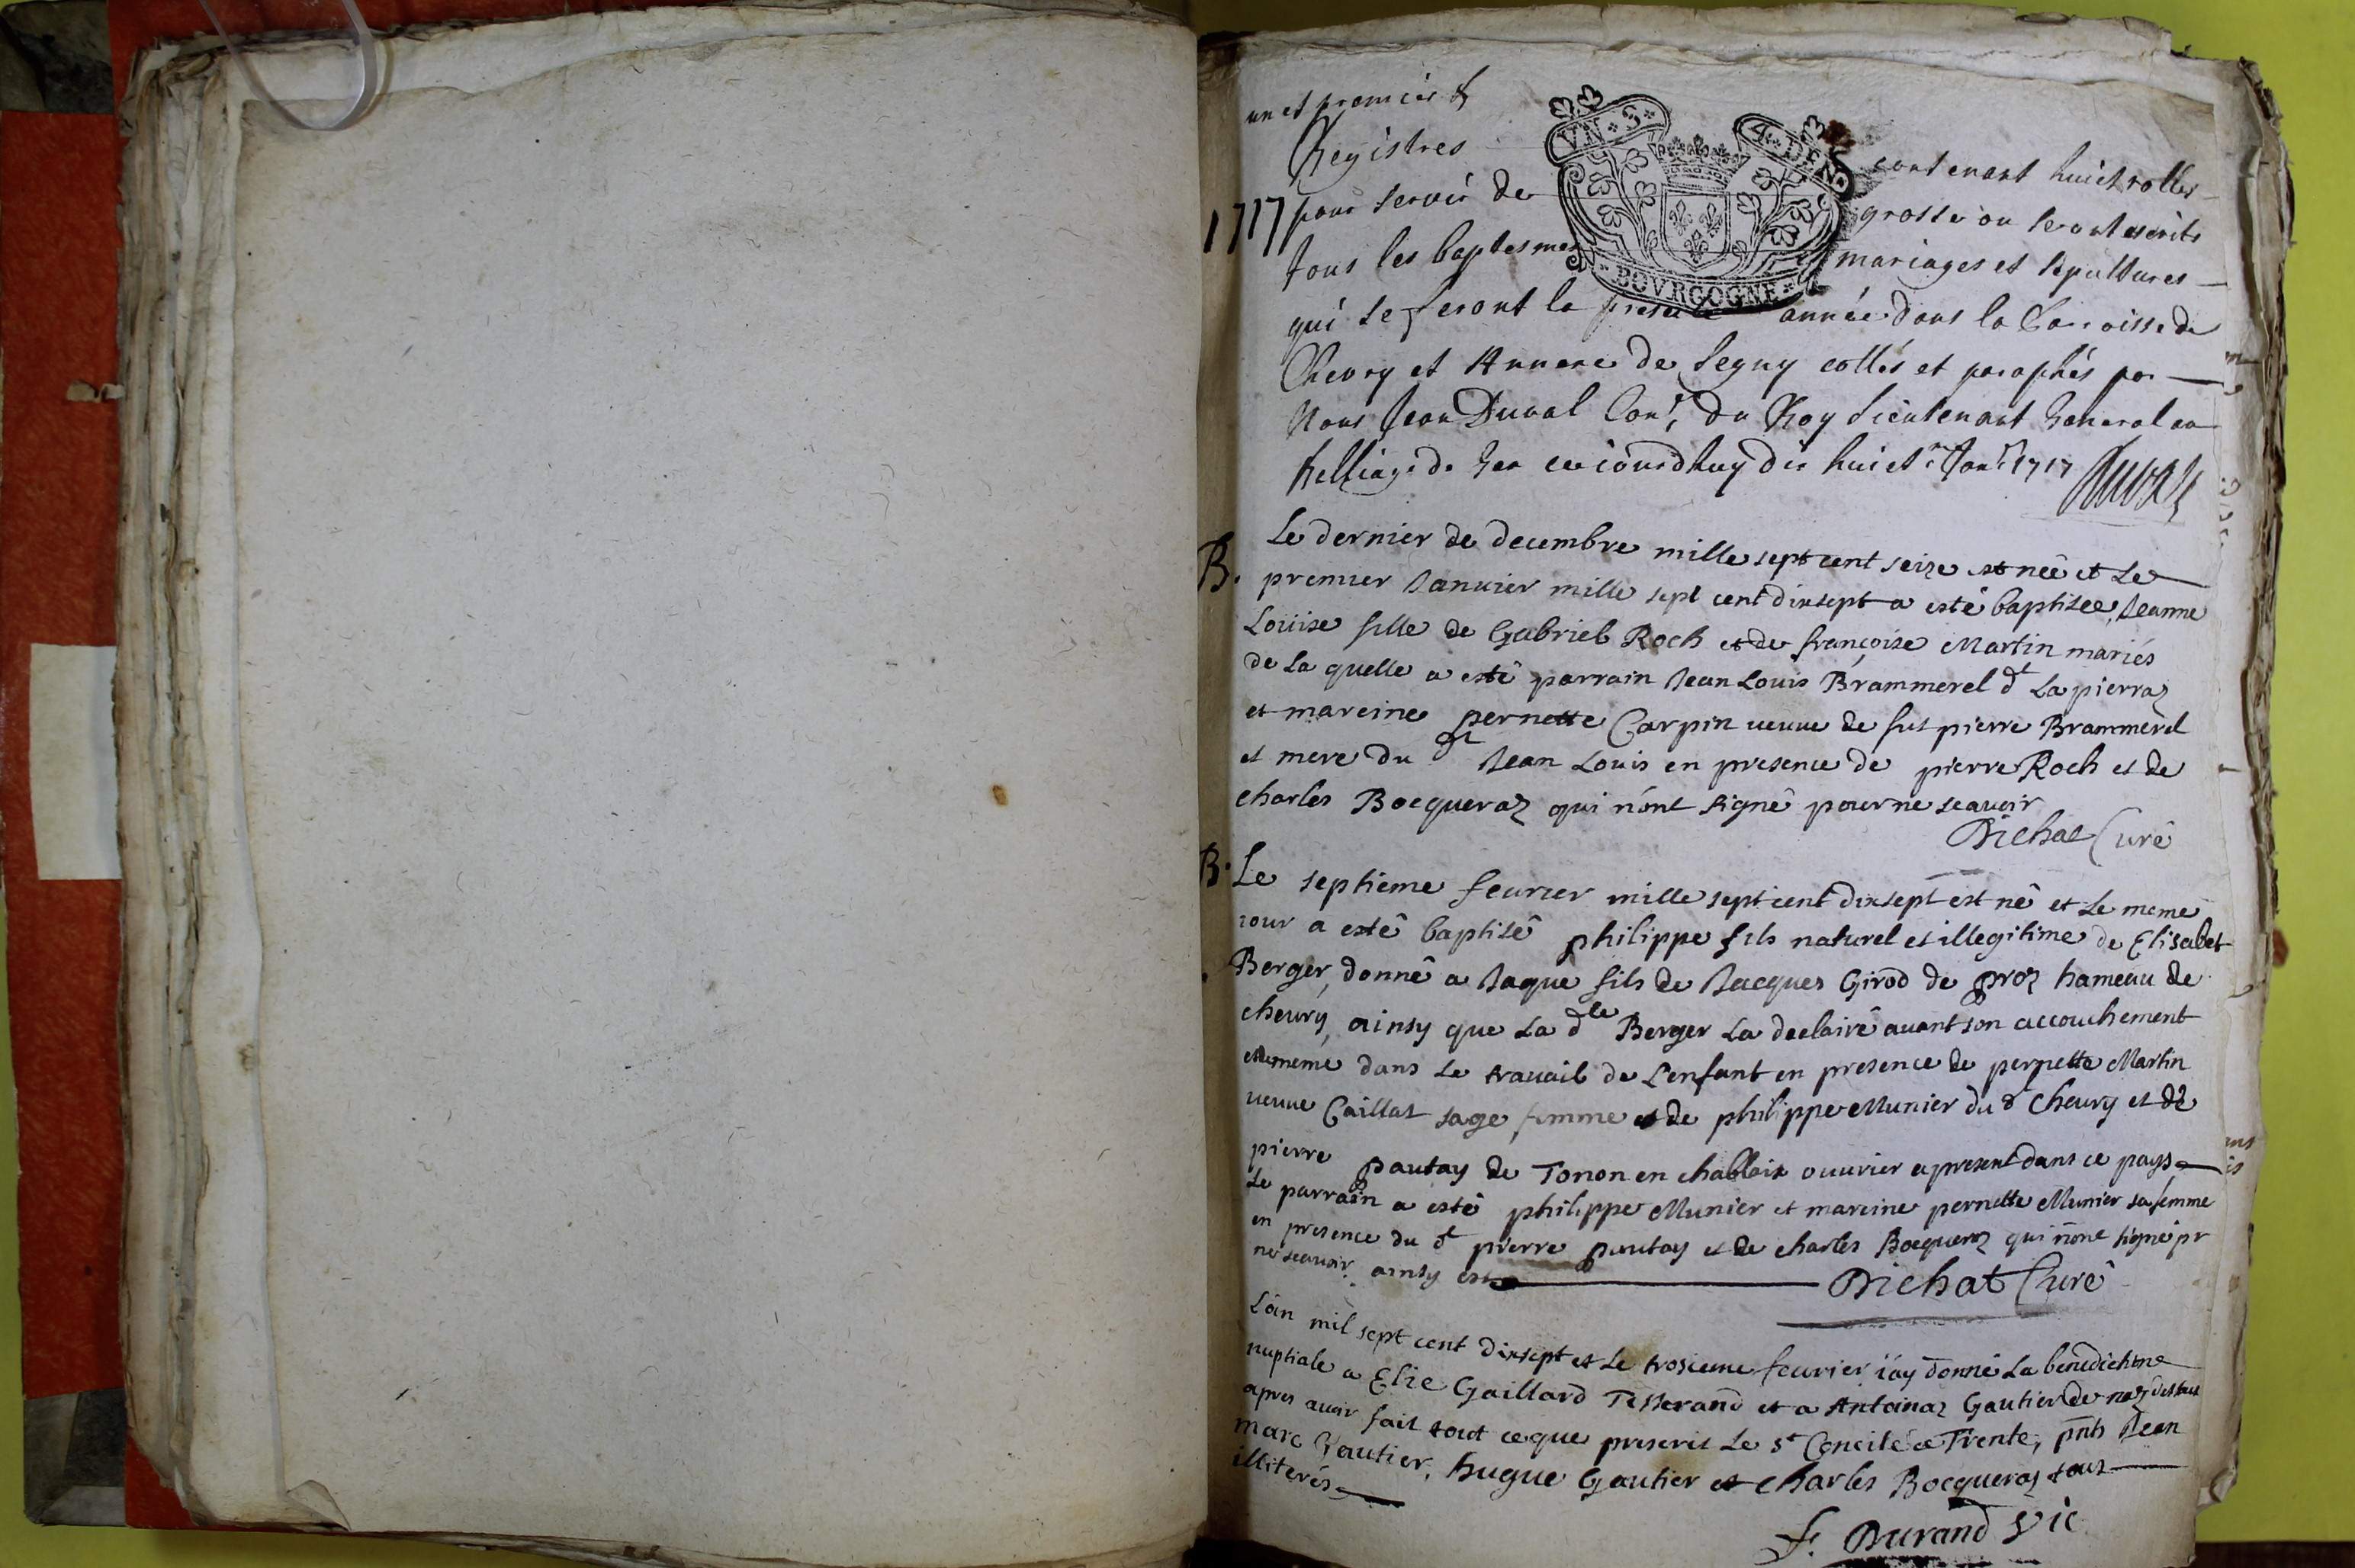 un et premier
Registres
VN · S · 4 · DEN
contenant huict rolles
1717 pour servir de
grosse ou seront escrits
tous les baptesmes
mariages et sepultures
BOVRGOGNE
qui se feront la presente année dans la Parroisse de
Chevry et Annexe de Segny cottés et paraphés par
Nous Jean Duval Con.r du Roy Lieutenant General au
Belliage de Gex ce jourdhuy dix huict Janr 1717
Duval
Le dernier de decembre mille sept cent seize est née et Le
B. premier Janvier mille sept cent dixsept a esté baptisée Jeanne
Loüise fille de Gabriel Roch et de françoise Martin mariés
de La quelle a esté parrain Jean Louis Brammerel dt La pierraz
et mareine pernette Carpin veuve de fut pierre Brammerel
et mere du dt Jean Louis en presence de pierre Roch et de
charles Bocqueraz qui n'ont signé pour ne scavoir
Dichat Curé
B. Le septieme fevrier mille sept cent dixsept est né et Le meme
iour a esté baptisé philippe fils naturel et illegitime de Elisabet
Berger, donné a Jaque fils de Jacques Girod de proz hameau de
chevry, ainsy que La dte Berger La declairé avant son accouchement
et meme dans Le travail de L'enfant en presence de pernette Martin
veuve Caillat sage femme et de philippe Munier du dt Chevry et de
pierre pautay de Tonon en chablaix ouvrier apresent dans ce pays
Le parrain a esté philippe Munier et mareine pernette Munier sa femme
en presence du dt pierre pautay et de charles Bocqueraz qui n'ont signé pr
ne scavoir. ainsy est
Dichat Curé
L'an mil sept cent dixsept et Le trosieme fevrier i'ay donné La benediction
nuptiale a Elie Gaillard Tesserand et a Antoinaz Gautier de naz dessus
apres avoir fait tout ce que prescrit Le st Concile de Trente, pnts Jean
Marc Gautier, hugue Gautier et Charles Bocqueraz tous
illiterés
f. Durand Vic